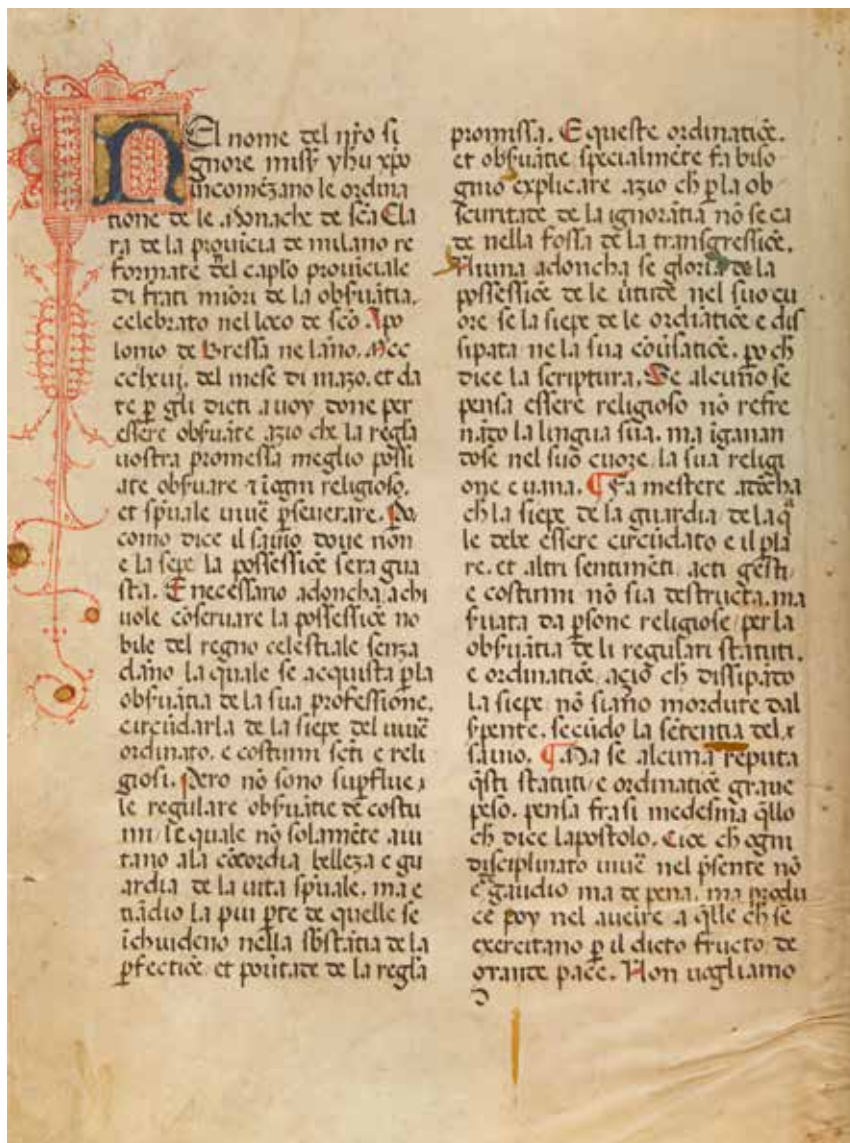 NEl nome del nr̄o si
gnore miss̄ yhu xp̄o
incomēzano le ordina
tione de le Monache de sc̄a Cla
ra de la prouīcia de milano re
formate del caplo prouīciale
di frati mīori de la obsuātia.
celebrato nel loco de sc̄o Apo
lonio de Bressa ne lāno. Mcc
cclxiij. del mese di mazo. et da
te ꝑ gli dicti a uoy done per
essere obsuāte azio che la regla
uostra promessa meglio possi
ate obsuare ⁊ ī ogni religioso.
et spūale uiuē ꝑseuerare. Po
como dice il sauio doue non
e la sepe la possessiōe sera gua
sta. E necessario adoncha a chi
uole cōseruare la possessiōe no
bile del regno celestiale senza
dāno la quale se acquista ꝑ la
obsuātia de la sua professione.
circūdarla de la siepe del uiuē
ordinato. e costumi sc̄ti e reli
giosi. Pero nō sono supflue
le regulare obsuātie de costu
mi / le quale nō solamēte aiu
tano a la cōcordia belleza e gu
ardia de la uita spūale. ma e
tiādio la piu ꝑte de quelle se
ichiudeno nella sbstātia de la
ꝑfectiōe et pouitate de la regla
promissa. E queste ordinatiōe.
et obsuātie specialmēte fa biso
gnio explicare azio ch̄ ꝑ la ob
scuritate de la ignorātia nō se ca
de nella fossa de la transgressiōe.
Niuna adoncha se gloria de la
possessiōe de le ūtute nel suo cu
ore se la siepe de le ordīatiōe e dis
sipata ne la sua cōūsatiōe. po ch̄
dice la scriptura. Se alcuno se
pensa essere religioso nō refre
nādo la lingua sua. ma iganan
dose nel suo cuore / la sua religi
one e uana. ¶ Fa mestere adōcha
ch̄ la siepe de la guardia de la q̄
le debe essere circūdato e il ꝑla
re. et altri sentimēti / acti gesti
e costumi nō sia destructa. ma
suata da ꝑsone religiose / per la
obsuātia de li regulari statuti.
e ordinatiōe / aciō ch̄ dissipato
la siepe / nō siano mordute dal
sꝑente. secūdo la sētentia del
sauio. ¶ Ma se alcuna reputa
q̄sti statuti / e ordinatiōe graue
peso. pensa fra si medesma q̄llo
ch̄ dice lapostolo. Cioe ch̄ ogni
disciplinato uiuē nel p̄sente nō
e gaudio ma de pena. ma produ
ce poy nel aueīre a q̄lle ch̄ se
exercitano ꝑ il dicto fructo de
grande pace. Non uogliamo